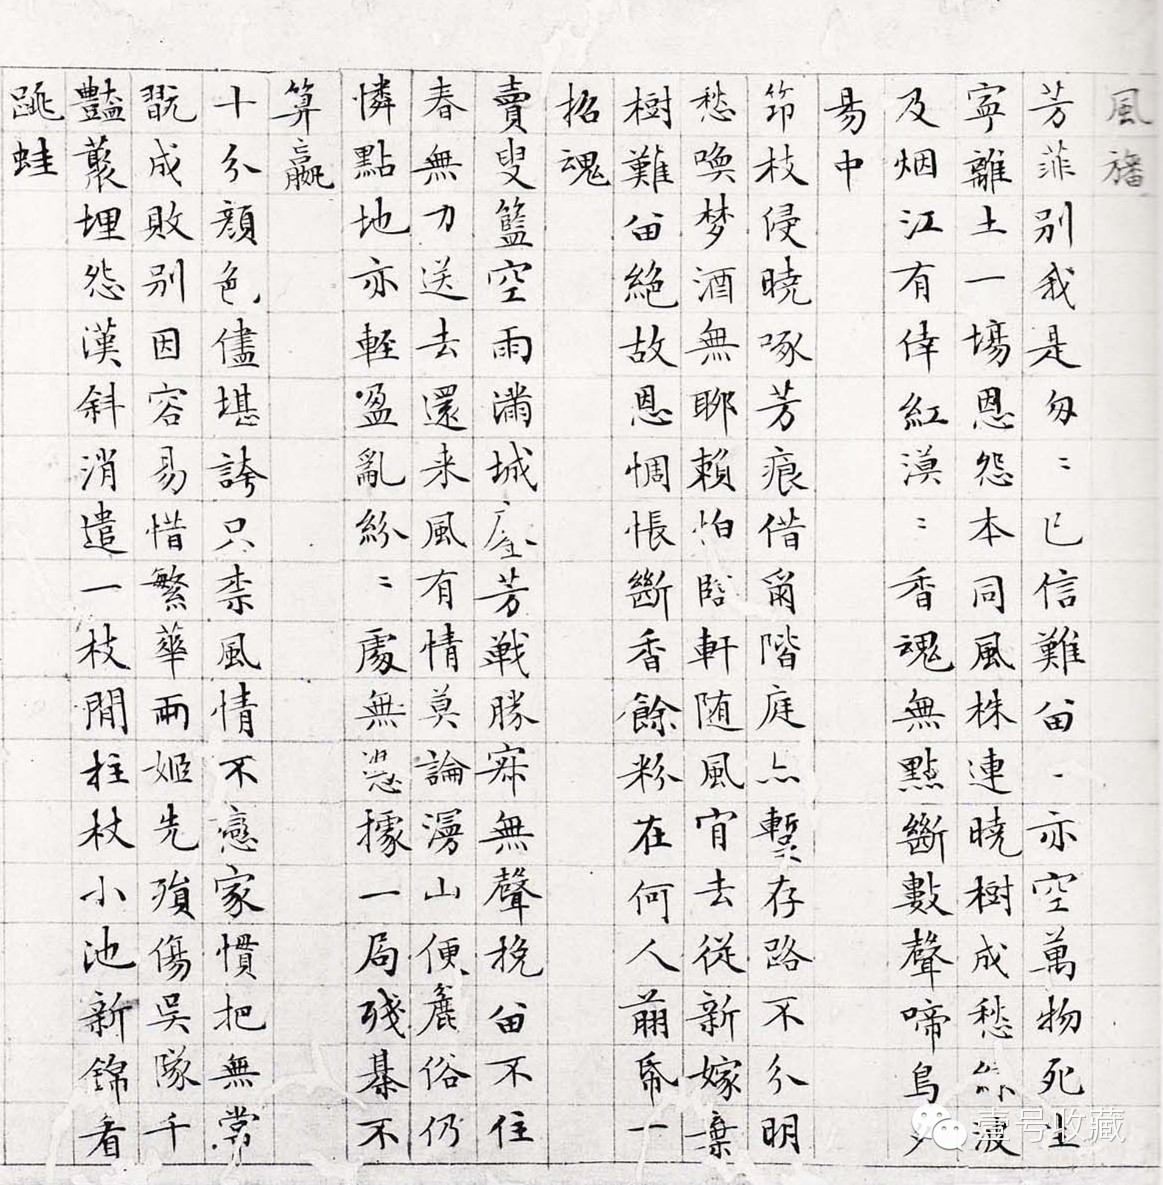 風旛
芳菲別我是匆〻已信難畱〻亦空萬物死生
寧離土一場恩怨本同風株連曉樹成愁綠波
及烟江有倖紅漠〻香魂無點斷數聲啼鳥夕
昜中
筇枝侵曉啄芳痕借爾階庭亦暫存路不分明
愁喚梦酒無聊賴怕臨軒随風肯去從新嫁棄
樹難畱絕故恩惆悵斷香餘粉在何人剪帋一
招魂
賣叟籃空雨滿城塵芳戰勝寂無聲挽畱不住
春無力送去還来風有情莫論漫山便麄俗仍
憐點地亦輕盈亂紛〻處無憑據一局殘棊不
算贏
十分顏色儘堪誇只柰風情不戀家慣把無常
翫成敗別因容易惜繁華兩姬先殞傷吳隊千
豔叢埋怨漢斜消遣一枝閒拄杖小池新錦看
跳蛙
壹号收藏